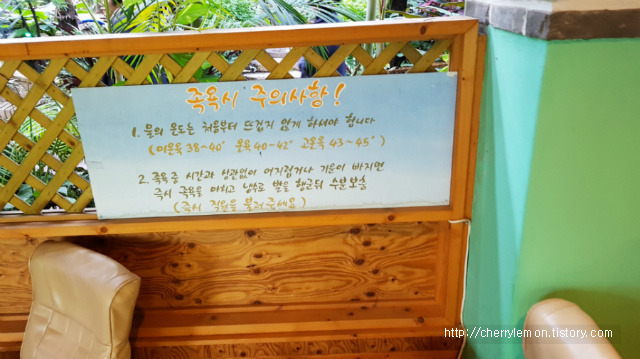 족욕시 주의사항!
1. 물의 온도는 처음부터 뜨겁지 않게 하셔야 합니다
(미온욕 38~40° 온욕 40~42° 고온욕 43~45°)
2. 족욕중 시간과 상관없이 어지럽거나 기운이 빠지면
즉시 족욕을 마치고 냉수로 발을 헹군뒤 수분보충
(즉시 직원을 불러주세요)
http://cherrylemon.tistory.com